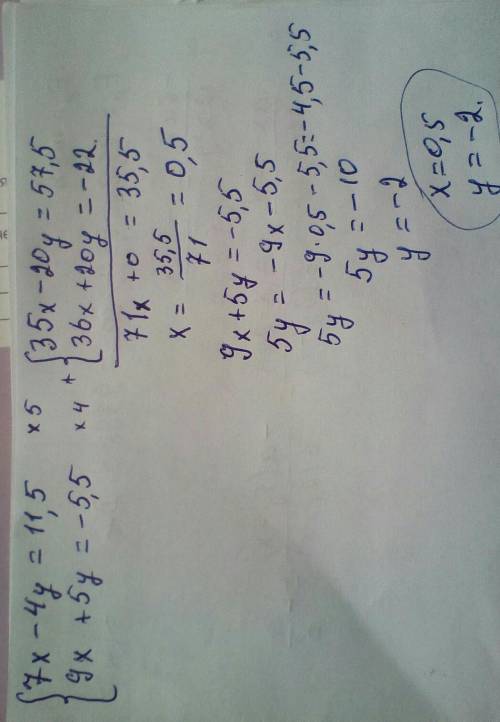 {7x - 4y = 11,5 x5 {35x - 20y = 57,5
{9x + 5y = -5,5 x4 + {36x + 20y = -22.
71x + 0 = 35,5
x = 35,5/71 = 0,5
9x + 5y = -5,5
5y = -9x - 5,5
5y = -9·0,5 - 5,5 = -4,5 - 5,5
5y = -10
y = -2
x = 0,5
y = -2.